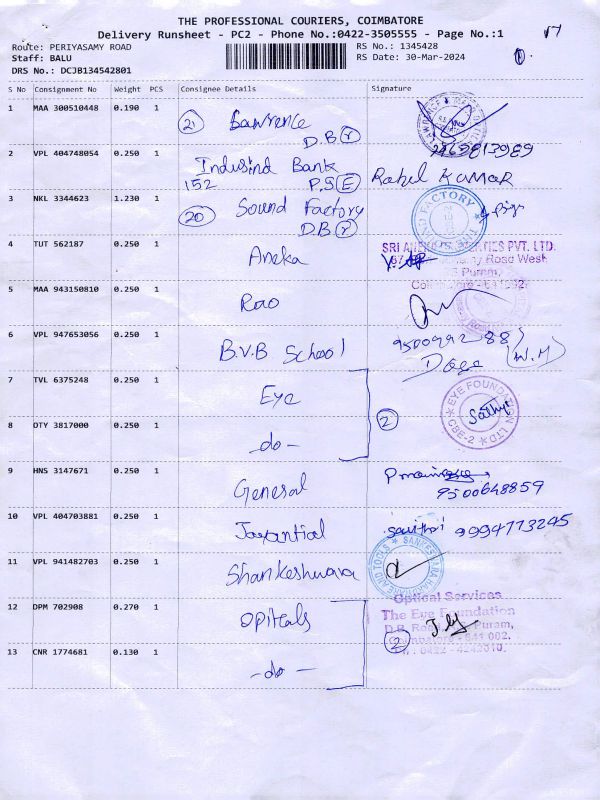 THE PROFESSIONAL COURIERS, COIMBATORE
Delivery Runsheet - PC2 - Phone No.:0422-3505555 - Page No.:1
Route: PERIYASAMY ROAD
Staff: BALU
DRS No.: DCJB134542801
RS No.: 1345428
RS Date: 30-Mar-2024
S No Consignment No Weight PCS Consignee Details Signature
1 MAA 300510448 0.190 1 21 Lawrence
D.B r
2 VPL 404748054 0.250 1 Indusind Bank
152 P.S E Rahul KUMAR
3 NKL 3344623 1.230 1 20 Sound Factory
D.B r
4 TUT 562187 0.250 1 Aneka
5 MAA 943150810 0.250 1 Rao
6 VPL 947653056 0.250 1 B.V.B School
7 TVL 6375248 0.250 1 Eye 2 EYE FOUNDATION LTD CBE-2 Sathya
8 OTY 3817000 0.250 1 -do-
9 HNS 3147671 0.250 1 General
9500648859
10 VPL 404703881 0.250 1 Jayantilal Savithri 9994773245
11 VPL 941482703 0.250 1 Shankeshwara
12 DPM 702908 0.270 1 Opticals
Optical Services
The Eye Foundation
13 CNR 1774681 0.130 1 -do- 2